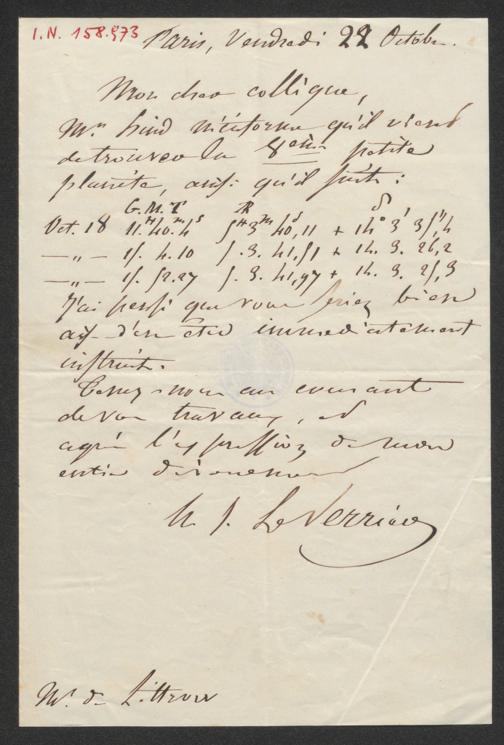 I.N. 158.973
Paris, Vendredi 22 Octobre.
Mon cher collègue,
Mr Hind m'informe qu'il vient
de trouver la 8ème petite
planète, ainsi qu'il suit:
G.M.T. R δ
Oct. 18 11.H40.m4s 5H3m40,s11 + 14° 3' 35",4
— „ — 15. 4.10 5. 3. 41,51 + 14. 3. 26,2
— „ — 15. 52.27 5. 3. 41,97 + 14. 3. 25,3
J'ai pensé que vous seriez bien
aise d'en être immédiatement
instruit.
Tenez-nous au courant
de vos travaux, et
agréez l'expression de mon
entier dévouement
U. J. Le Verrier
Mr. de Littrow